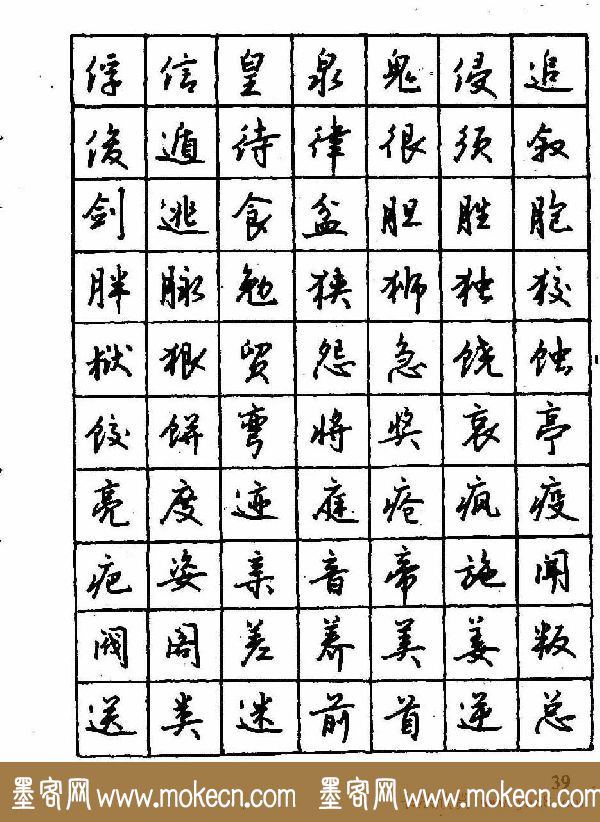 俘信皇泉鬼侵追
俊遁待律很须叙
剑逃食盆胆胜胞
胖脉勉狭狮独狡
狱狠贸怨急饶蚀
饺饼弯将奖哀亭
亮度迹庭疮疯疫
疤姿亲音帝施闻
阀阁差养美姜叛
送类迷前首逆总
39
墨客网 www.mokecn.com 墨客网 www.mokecn.com